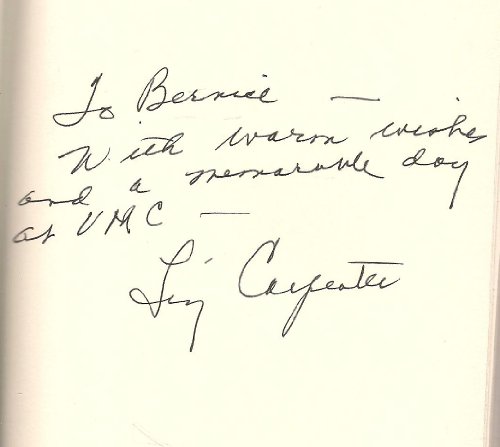 To Bernice —
With warm wishes
and a memorable day
at VMC —
Liz Carpenter